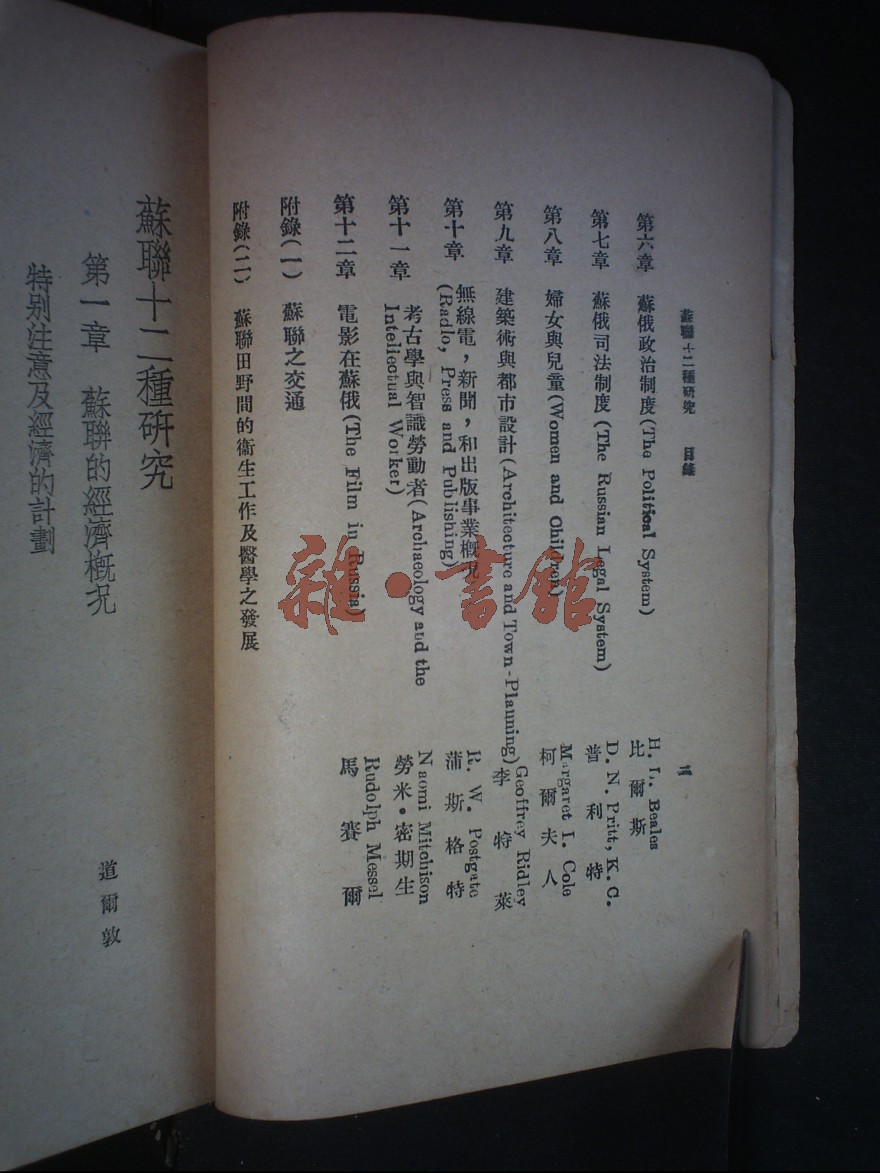 蘇聯十二種研究 目錄
二
第六章 蘇俄政治制度(The Political System)
H. L. Beales
比爾斯
第七章 蘇俄司法制度(The Russian Legal System)
D. N. Pritt, K. C.
普利特
第八章 婦女與兒童(Women and Children)
Margaret I. Cole
柯爾夫人
第九章 建築術與都市設計(Architecture and Town-Planning)
Geoffrey Ridley
李特萊
第十章 無線電,新聞,和出版事業概況
(Radio, Press and Publishing)
R. W. Postgate
蒲斯格特
第十一章 考古學與智識勞動者(Archaeology and the
Intellectual Worker)
Naomi Mitchison
勞米·密期生
第十二章 電影在蘇俄(The Film in Russia)
Rudolph Messel
馬賽爾
附錄(一) 蘇聯之交通
附錄(二) 蘇聯田野間的衛生工作及醫學之發展
蘇聯十二種研究
第一章 蘇聯的經濟概況
道爾敦
特別注意及經濟的計劃
雜·書館